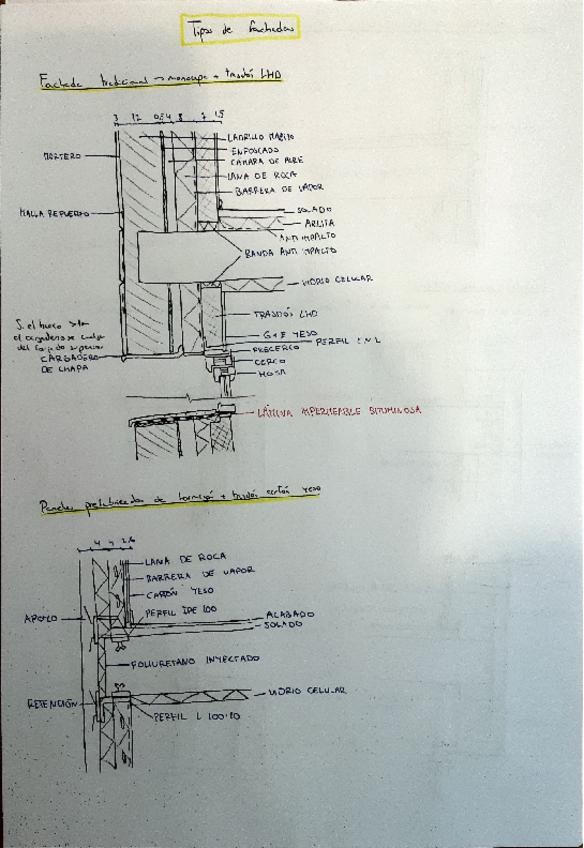 Tipos de fachadas
Fachada tradicional → monocapa + trasdós LHD
3 12 4 8 7 1,5
LADRILLO MACIZO
ENFOSCADO
MORTERO
CÁMARA DE AIRE
LANA DE ROCA
BARRERA DE VAPOR
MALLA REFUERZO
SOLADO
ARLITA
ANTI IMPACTO
BANDA ANTI IMPACTO
VIDRIO CELULAR
TRASDÓS LHD
S. el hueco > 1m
el cargadero se cuelga
del forjado superior
G+E YESO
PERFIL EN L
PRECERCO
CARGADERO
DE CHAPA
CERCO
HOJA
LÁMINA IMPERMEABLE BITUMINOSA
Paneles prefabricados de hormigón + trasdós cartón yeso
4 7 2,6
LANA DE ROCA
BARRERA DE VAPOR
CARTÓN YESO
PERFIL IPE 100
APOYO
ACABADO
SOLADO
POLIURETANO INYECTADO
VIDRIO CELULAR
RETENCIÓN
PERFIL L 100·10